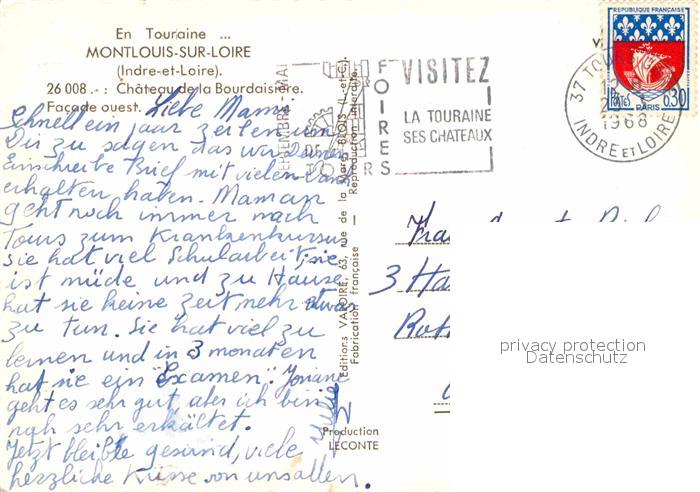 En Touraine ...
MONTLOUIS-SUR-LOIRE
(Indre-et-Loire).
26 008. - : Château de la Bourdaisière.
Façade ouest.
Liebe Mami
Schnell ein paar zeilen um
Dir zu sagen das wir Deinen
Einschreibe Brief mit vielen Dank
erhalten haben. Maman
geht noch immer nach
Tours zum Krankenkursus
sie hat viel Schularbeit, sie
ist müde und zu Hause
hat sie keine zeit mehr etwas
zu tun. Sie hat viel zu
lernen und in 3 monaten
hat sie ein "Examen". Josiane
geht es sehr gut aber ich bin
noh sehr erkältet.
Jetzt bleible gesund, viele
herzliche Küsse von uns allen.
Editions VALOIRE, 63, rue de la Mare, BLOIS (L.-et-C.)
Fabrication française — Reproduction interdite
Production
LECONTE
FOIRES
DE
TOURS
MAI
VISITEZ
LA TOURAINE
SES CHATEAUX
37 TOURS
1968
INDRE ET LOIRE
REPUBLIQUE FRANÇAISE
POSTES
PARIS
0,30
3
privacy protection
Datenschutz